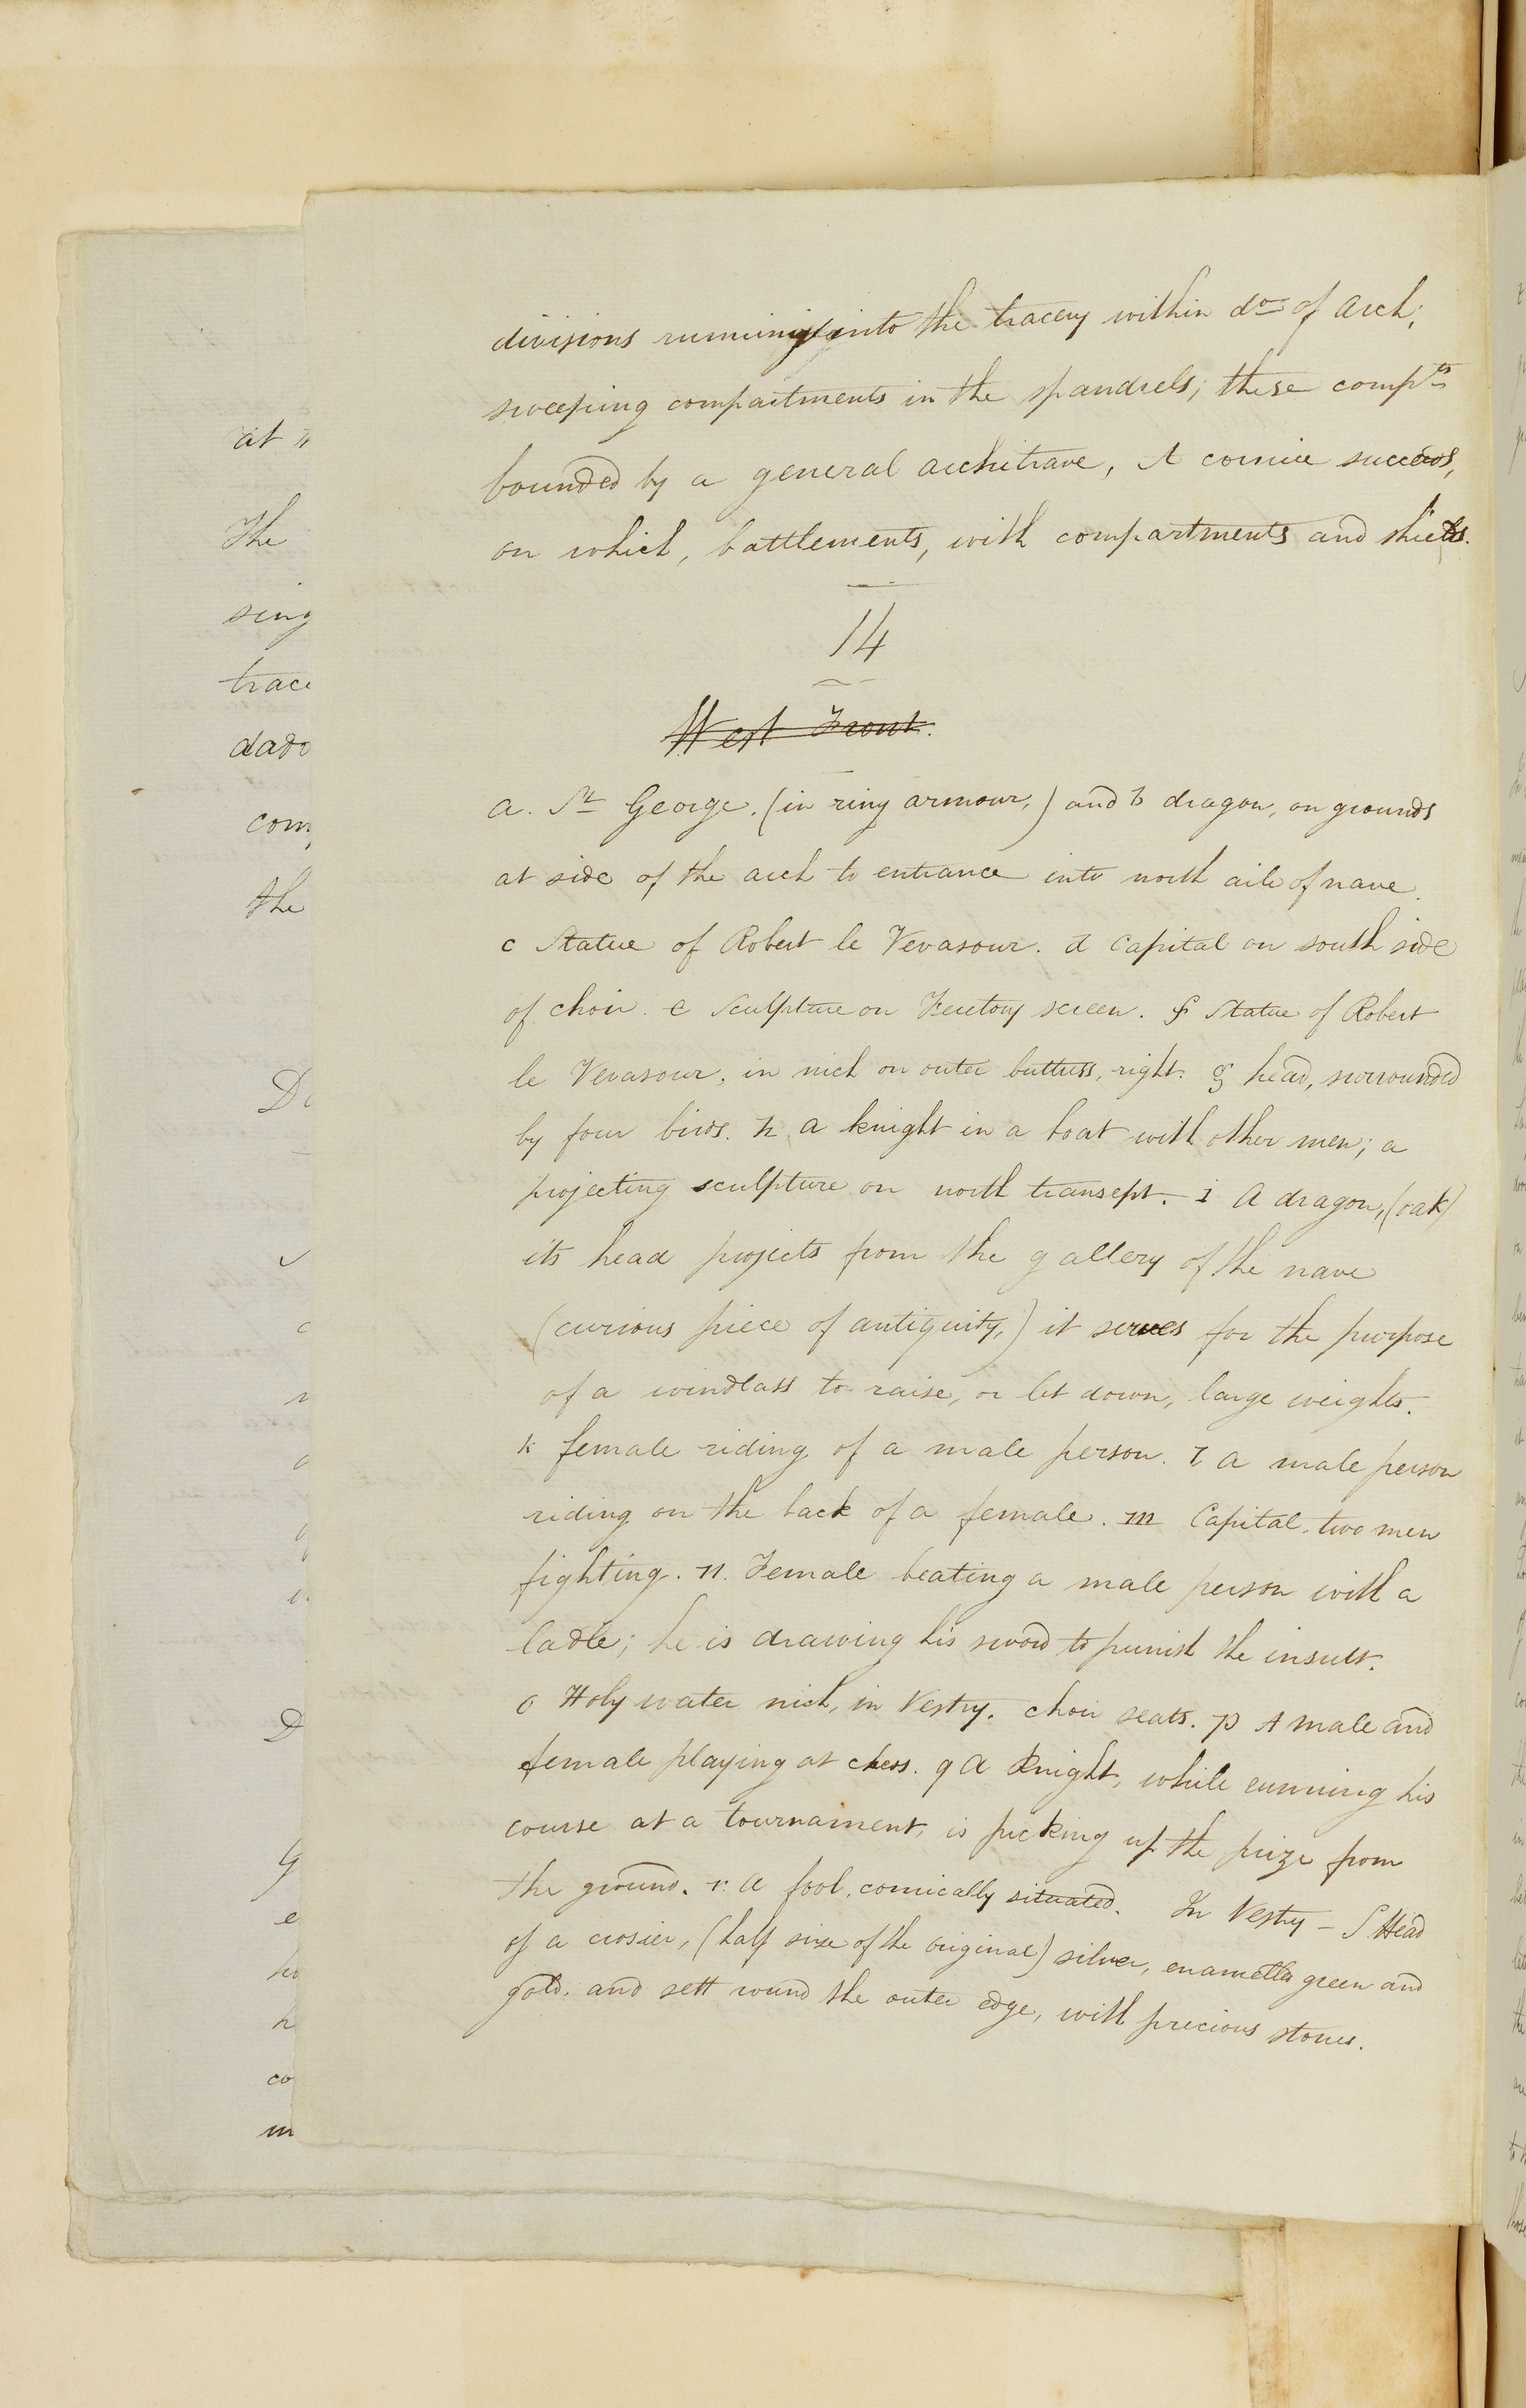 divisions running into the tracery within do of Arch;
sweeping compartments in the spandrels; these compts
bounded by a general architrave, A cornice succeeds,
on which, battlements, with compartments and shields.
14
West Front.
a. St George. (in ring armour,) and b dragon, on grounds
at side of the arch to entrance into north aile of nave.
c Statue of Robert le Vevasour. d Capital on south side
of choir. e Sculpture on Feretory screen. f Statue of Robert
le Vevasour. in nich on outer buttress, right. g head, surrounded
by four birds. h a knight in a boat with other men; a
projecting sculpture on north transept. i A dragon, (oak)
its head projects from the gallery of the nave
(curious piece of antiquity,) it serves for the purpose
of a windlass to raise, or let down, large weights.
k female riding of a male person. l a male person
riding on the back of a female. m Capital. two men
fighting. n. Female beating a male person with a
ladle; he is drawing his sword to punish the insult.
o Holy water nich, in Vestry. choir seats. p A male and
female playing at chess. q A Knight, while running his
course at a tournament, is picking up the prize from
the ground. r. A fool, comically situated. In Vestry - S Head
of a crosier, (half size of the original) silver, enamelled green and
gold. and sett round the outer edge, with precious stones.
at
The
sing
trace
dado
com
the
D
D
e
h
co